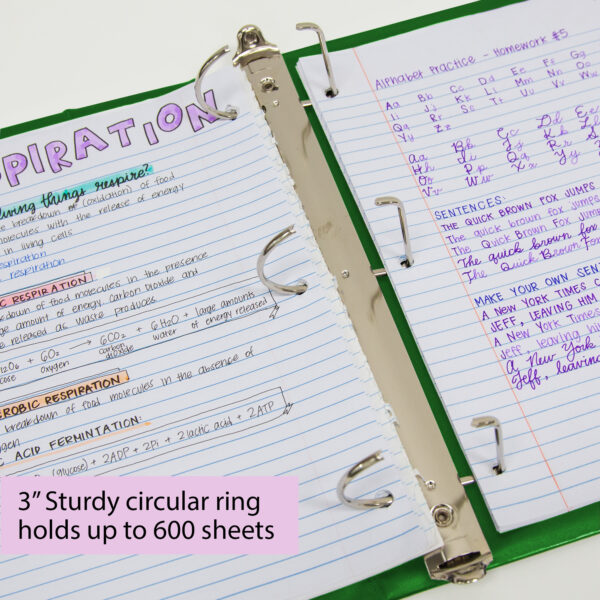 PIRATION
living things respire?
e breakdown of (oxidation) of food
molecules with the release of energy
in living cells
respiration
respiration
C RESPIRATION
down of food molecules in the presence
ge amount of energy. Carbon dioxide and
e released as waste produces
+ 6O₂ → 6CO₂ + 6H₂O + large amounts
ose oxygen carbon dioxide water of energy released
EROBIC RESPIRATION
breakdown of food molecules in the absence of
gen
C ACID FERMINTATION:
(glucose) + 2ADP + 2Pi → 2lactic acid + 2ATP
Alphabet Practice - Homework #5
Aa Bb Cc Dd Ee Ff Gg
Ii Jj Kk Ll Mm Nn Oo
Qq Rr Ss Tt Uu Vv Ww
Yy Zz
Aa Bb Cc Dd Ee
Hh Ii Jj Kk Ll
Oo Pp Qq Rr Ss
Vv Ww Xx Yy Zz
SENTENCES:
THE QUICK BROWN FOX JUMPS
The quick brown fox jumps
The Quick Brown Fox Jump
The quick brown fox
The Quick Brown Fox
MAKE YOUR OWN SENT
A NEW YORK TIMES C
JEFF, LEAVING HIM
A New York Times
Jeff, leaving hi
A New York
Jeff, leaving
3” Sturdy circular ring
holds up to 600 sheets